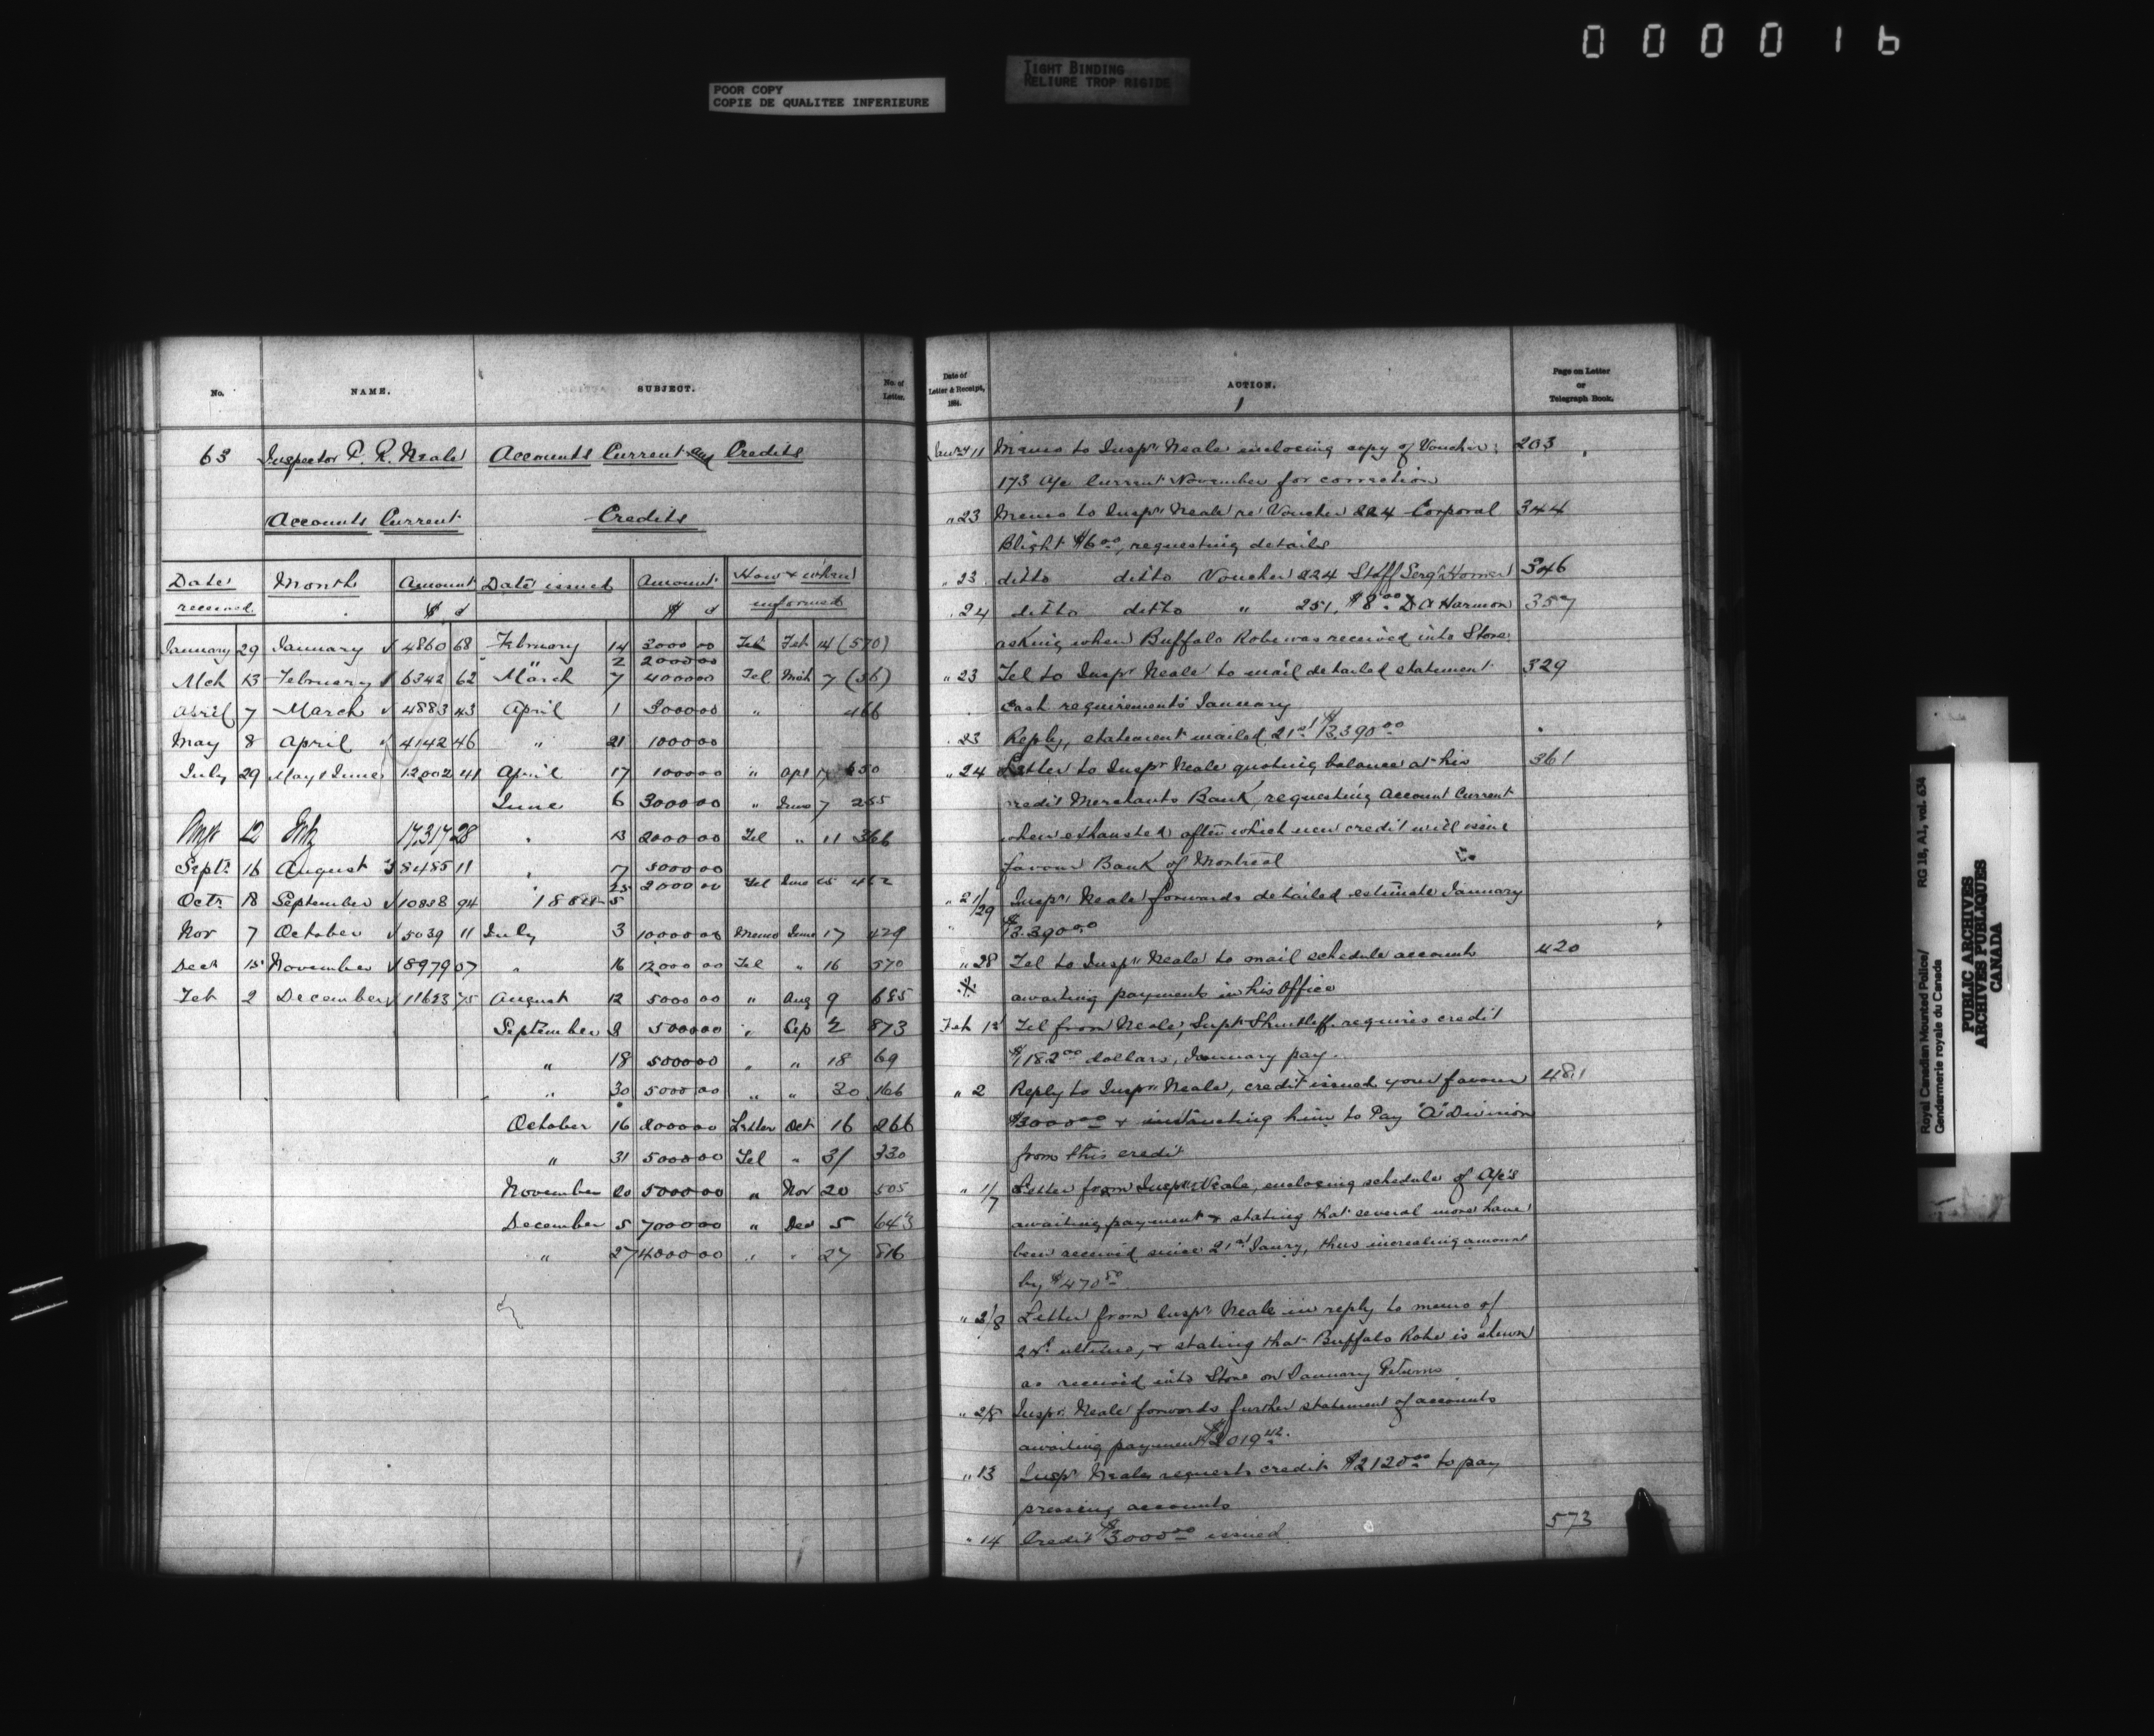 000016
POOR COPY
COPIE DE QUALITEE INFERIEURE
TIGHT BINDING
RELIURE TROP RIGIDE
No. NAME. SUBJECT. No. of Letter.
63 Inspector P. R. Neale Accounts Current and Credits
Accounts Current Credits
Date received Month Amount $ c Date issued Amount $ c How & when informed
January 29 January 4860 68 February 14 3000 00 Tel Feb 14 (570)
" 2 2000 00
Mch 13 February 6342 62 March 7 4000 00 Tel Mch 7 (36)
April 7 March 4883 43 April 1 3000 00 " 466
May 8 April 4142 46 " 21 1000 00
July 29 May & June 12002 41 April 17 1000 00 " Apl 17 650
June 6 3000 00 " June 7 255
12 17,317 28 " 13 2000 00 Tel " 11 366
Septr 16 August 8485 11 " 17 5000 00
25 2000 00 Tel June 25 462
Octr 18 September 10858 94
Nov 7 October 5039 11 July 3 10,000 00 Memo June 17 429
Decr 15 November 8979 07 " 16 12,000 00 Tel " 16 570
Feb 2 December 11653 75 August 12 5000 00 " Aug 9 685
September 2 5000 00 " Sep 2 873
" 18 5000 00 " " 18 69
" 30 5000 00 " " 30 166
October 16 2000 00 Letter Oct 16 266
" 31 5000 00 Tel " 31 330
November 20 5000 00 " Nov 20 505
December 5 7000 00 " Dec 5 643
" 27 4000 00 " " 27 816
Date of Letter & Receipt, 1884. ACTION. Page on Letter or Telegraph Book.
11 Memo to Inspr Neale enclosing copy of Voucher 203
173 a/c Current November for correction
" 23 Memo to Inspr Neale re Voucher 224 Corporal 344
Blight $6 00, requesting details
" 23 ditto ditto Voucher 224 Staff Sergt Horner 346
" 24 ditto ditto " 251, $8 00 D A Harmon 357
asking when Buffalo Robe was received into Store
" 23 Tel to Inspr Neale to mail detailed statement 329
cash requirements January
" 23 Reply, statement mailed 21st $3390 00
" 24 Letter to Inspr Neale quoting balance at his 361
credit Merchants Bank, requesting Account Current
when exhausted after which new credit will issue
favour Bank of Montreal
" 21/29 Inspr Neale forwards detailed estimate January
$3.390 00
" 28 Tel to Inspr Neale to mail schedule accounts 420
awaiting payment in his Office
Feb 1st Tel from Neale, Supt Shurtliff requires credit
$1182 00 dollars, January pay.
" 2 Reply to Inspr Neale, credit issued your favour 481
$3000 00 & instructing him to Pay "A" Division
from this credit
" 1/7 Letter from Inspr Neale, enclosing schedule of A/cs
awaiting payment & stating that several more have
been received since 21st Jany, thus increasing amount
by $470
" 2/8 Letter from Inspr Neale in reply to memo of
ultimo, & stating that Buffalo Robe is shewn
as received into Store on January Returns
" 2/8 Inspr Neale forwards further statement of accounts
awaiting payment $2019 42.
" 13 Inspr Neale requests credit $2120 00 to pay
pressing accounts
" 14 Credit $3000 00 issued 573
Royal Canadian Mounted Police/ RG 18, A1, vol. 634
Gendarmerie royale du Canada
PUBLIC ARCHIVES
ARCHIVES PUBLIQUES
CANADA